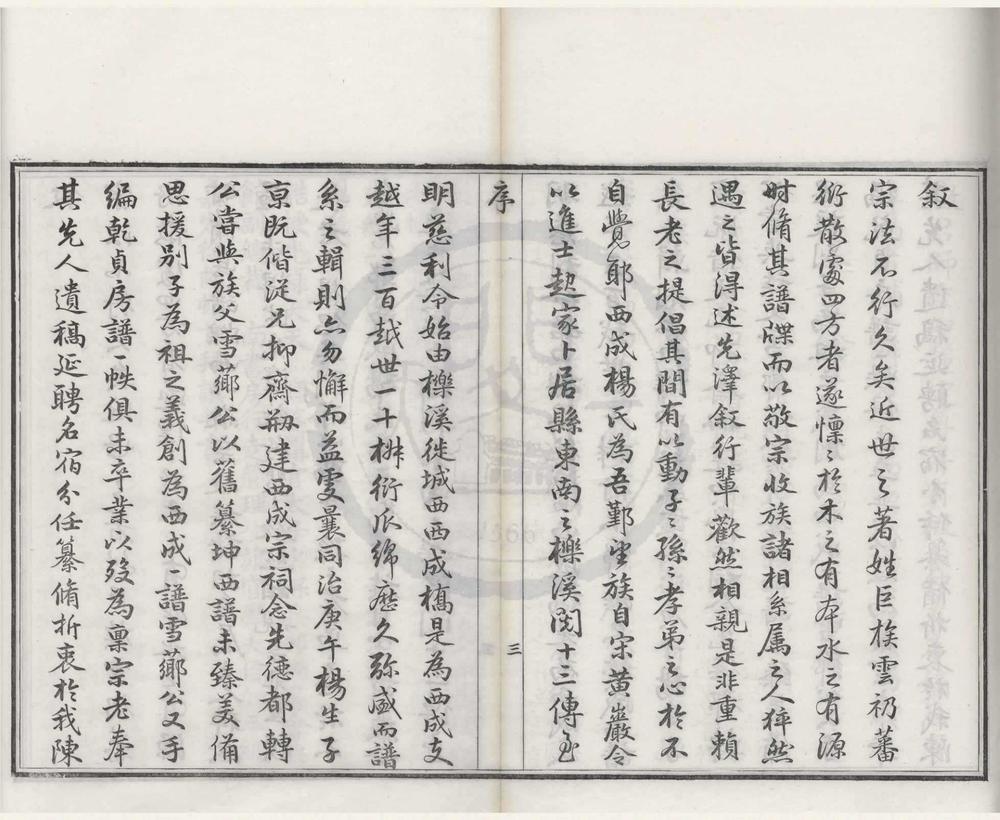 叙
宗法不行久矣近世之著姓巨族雲礽蕃
衍散處四方者遂懔〻於木之有本水之有源
时脩其譜牒而以敬宗收族諸相系屬之人猝然
遇之皆得述先澤叙行輩歡然相親是非重賴
長老之提倡其間有以動子〻孫〻孝弟之心於不
自覺郎西成楊氏為吾鄞望族自宋黃巖令
以進士起家卜居縣東南之櫟溪閲十三傳至
序
三
明慈利令始由櫟溪徙城西西成橋是為西成支
越年三百越世一十椒衍瓜綿歷久弥盛而譜
系之輯則亦勿懈而益虔曩同治庚午楊生子
京既偕從兄抑齋剏建西成宗祠念先德都轉
公嘗與族父雪薌公以舊纂坤西譜未臻美備
思援別子為祖之義創為西成一譜雪薌公又手
編乾貞房譜一帙俱未卒業以歿為稟宗老奉
其先人遺稿延聘名宿分任纂脩折衷於我陳